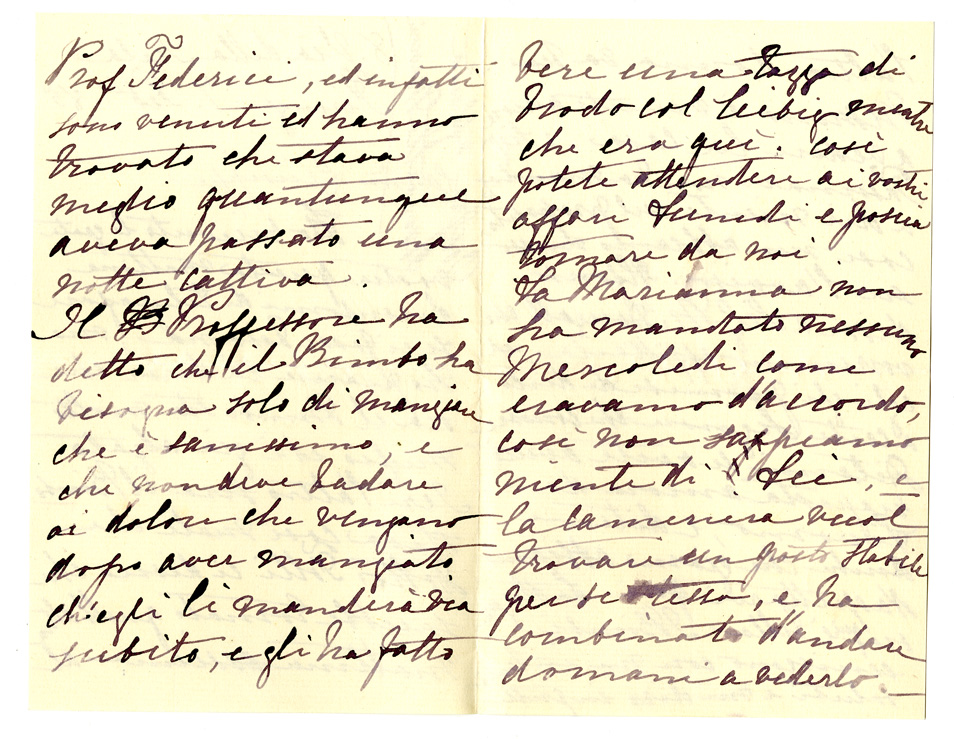 Prof Federici, ed infatti
sono venuti ed hanno
trovato che stava
meglio quantunque
aveva passato una
notte cattiva.
Il Proffessore ha
detto che il Bimbo ha
bisogna solo di mangiare
che è sanissimo, e
che non deve badare
ai dolori che vengano
dopo aver mangiato
ch'egli li manderà via
subito, e gli ha fatto
bere una tazza di
brodo col Liebig mentre
che era quì. Così
potete attendere ai vostri
affari Lunedì e poscia
tornare da noi
La Marianna non
ha mandato nessuno
Mercoledì come
eravamo d'accordo,
così non sappiamo
niente di Lei, e
la cameriera vuol
trovare un posto stabile
per se stessa, e ha
combinato d'andare
domani a vederlo.